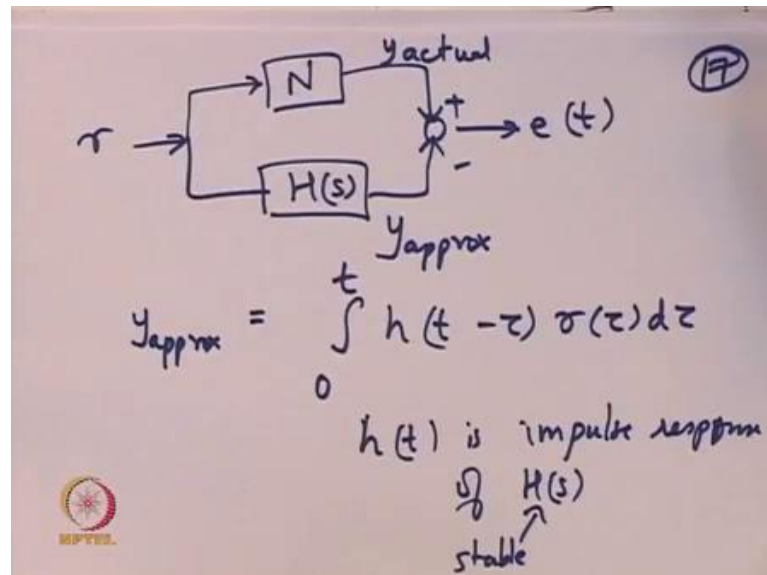 y actual
17
N
r
+
e (t)
H(s)
-
y approx
t
y approx = ∫ h (t - τ) r(τ) dτ
0
h(t) is impulse response
of H(s)
stable
NPTEL